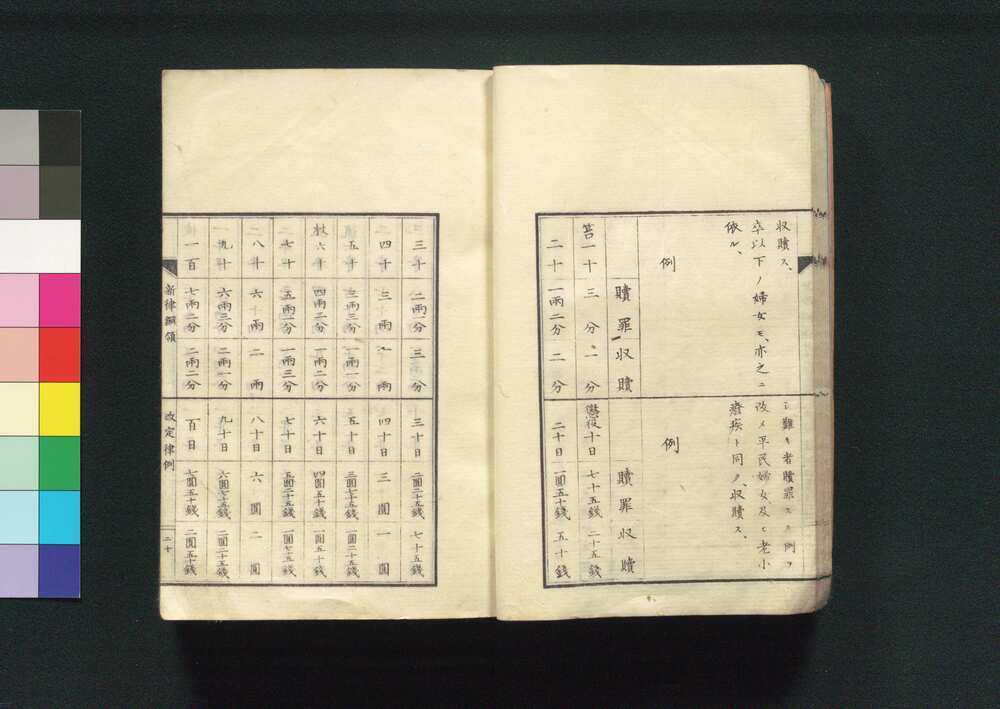 収贖ス、
卒以下ノ婦女モ、亦之ニ
依ル、
例
贖罪 収贖
笞一十 三分 一分
二十 一兩二分 二分
シ難キ者贖罪スル例ヲ
改メ平民婦女及ヒ老小
癈疾ト同ク、収贖ス、
例
贖罪 収贖
懲役十日 七十五錢 二十五錢
二十日 一圓五十錢 五十錢
三十 二兩一分 三分
四十 三兩 一兩
五十 三兩三分 一兩一分
杖六十 四兩二分 一兩二分
七十 五兩一分 一兩三分
八十 六兩 二兩
九十 六兩三分 二兩一分
一百 七兩二分 二兩二分
三十日 二圓二十五錢 七十五錢
四十日 三圓 一圓
五十日 三圓七十五錢 一圓二十五錢
六十日 四圓五十錢 一圓五十錢
七十日 五圓二十五錢 一圓七十五錢
八十日 六圓 二圓
九十日 六圓七十五錢 二圓二十五錢
百日 七圓五十錢 二圓五十錢
新律綱領 改定律例 二十